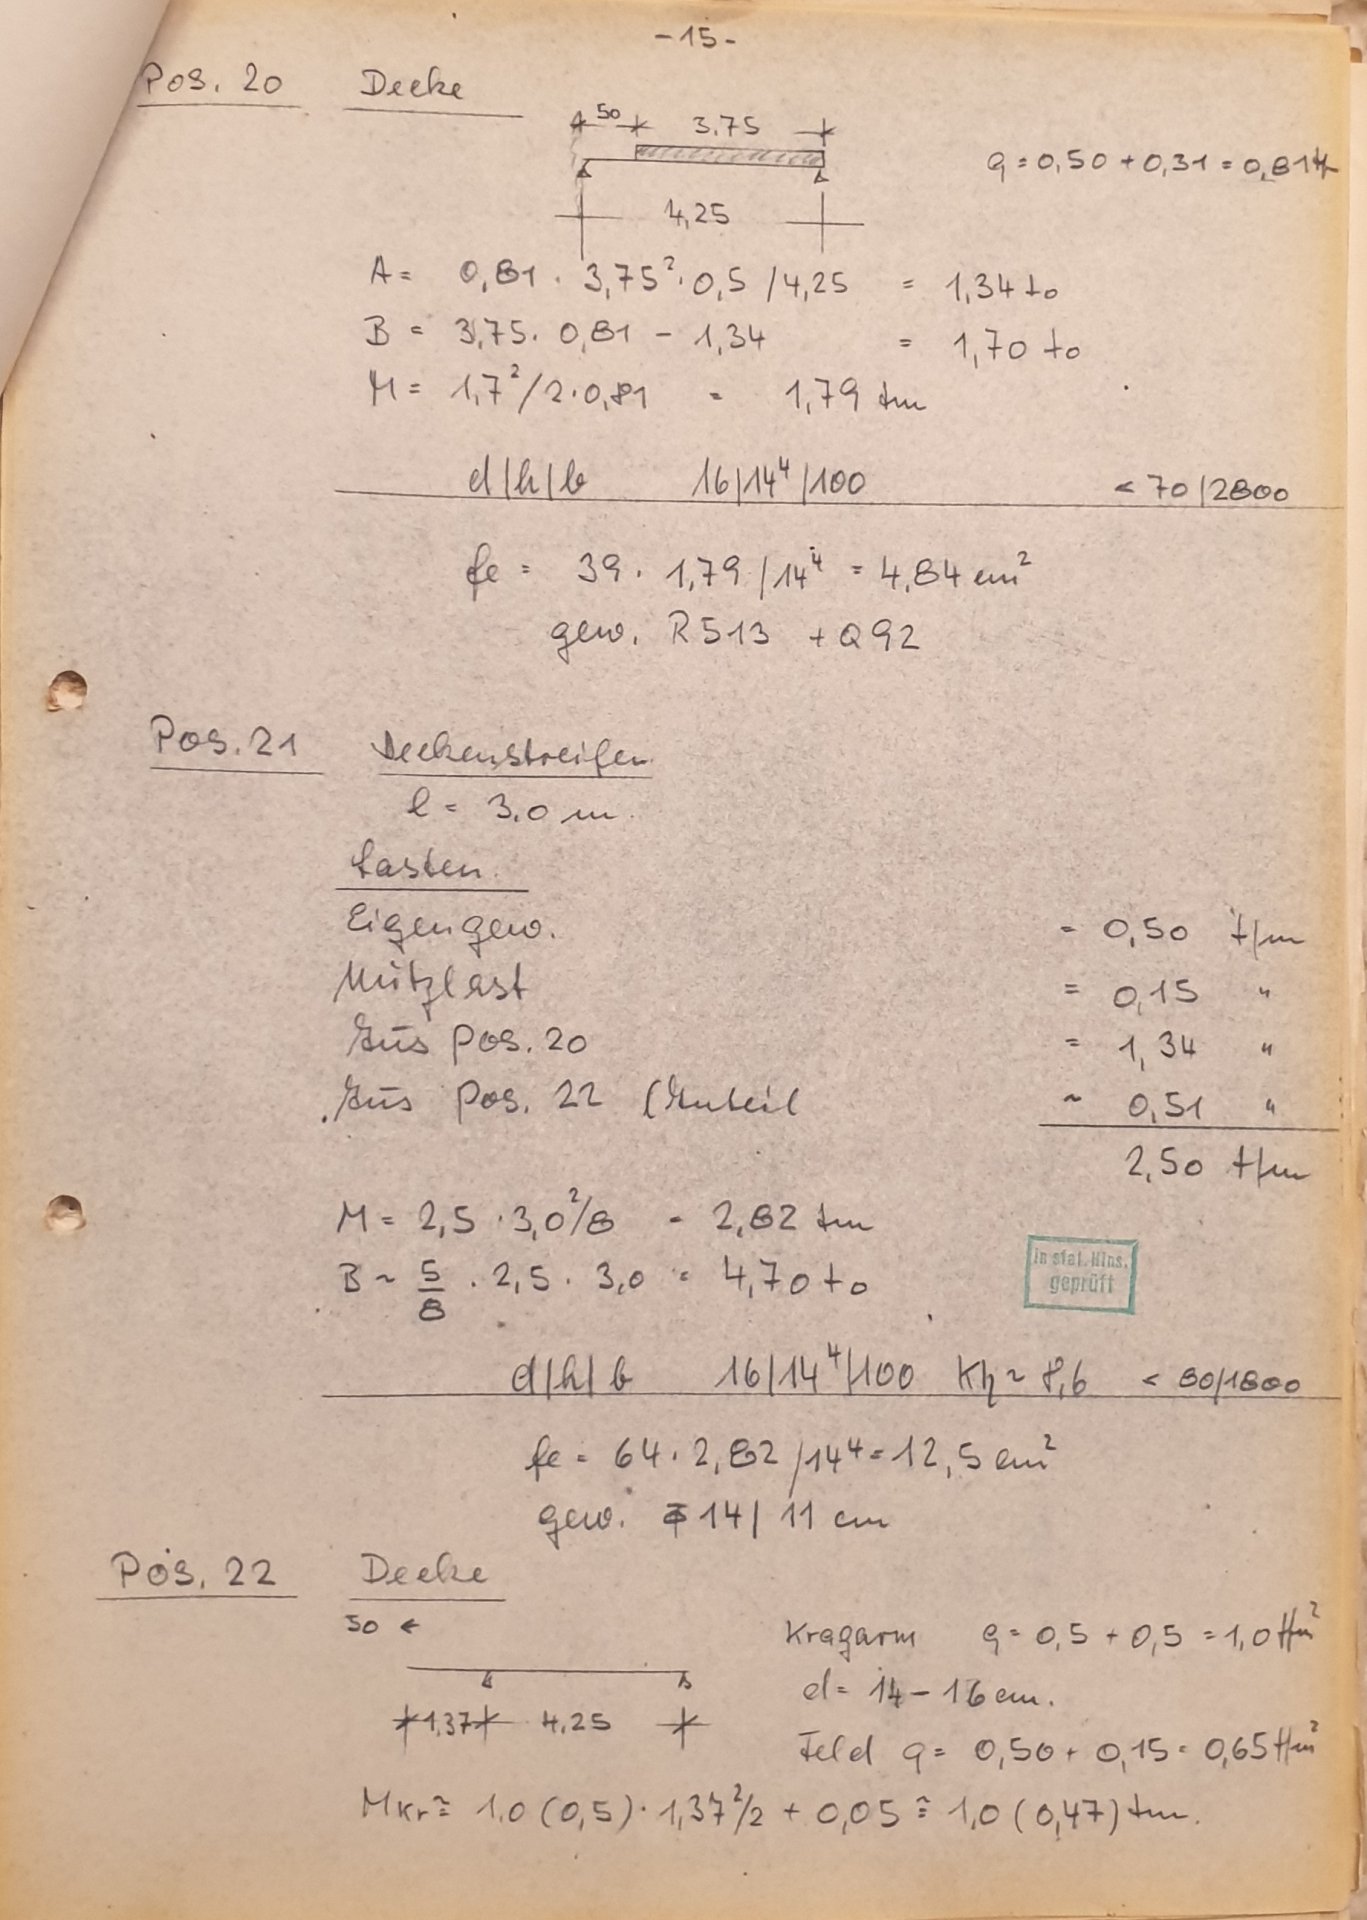 -15-
Pos. 20 Decke
50 3.75
q = 0,50 + 0,31 = 0,81 t/m
4,25
A = 0,81 · 3,75² · 0,5 / 4,25 = 1,34 to
B = 3,75 · 0,81 - 1,34 = 1,70 to
M = 1,7² / 2 · 0,81 = 1,79 tm
d/h/b 16/14⁴/100 < 70/2800
fe = 39 · 1,79 / 14⁴ = 4,84 cm²
gew. R513 + Q92
Pos. 21 Deckenstreifen
l = 3.0 m.
Lasten
Eigengew. = 0,50 t/m
Nützlast = 0,15 "
Aus Pos. 20 = 1,34 "
Aus Pos. 22 (Anteil ~ 0,51 "
2,50 t/m
M = 2,5 · 3,0²/8 = 2,82 tm
B ~ 5/8 · 2,5 · 3,0 = 4,70 to
in stat. Hins.
geprüft
d/h/b 16/14⁴/100 Kh ~ 8,6 < 80/1800
fe = 64 · 2,82 / 14⁴ = 12,5 cm²
gew. 14 / 11 cm
Pos. 22 Decke
50 ←
Kragarm q = 0,5 + 0,5 = 1,0 t/m²
d = 14 - 16 cm.
1,37 4.25
Feld q = 0,50 + 0,15 = 0,65 t/m²
MKr ≅ 1,0 (0,5) · 1,37²/2 + 0,05 ≅ 1,0 (0,47) tm.